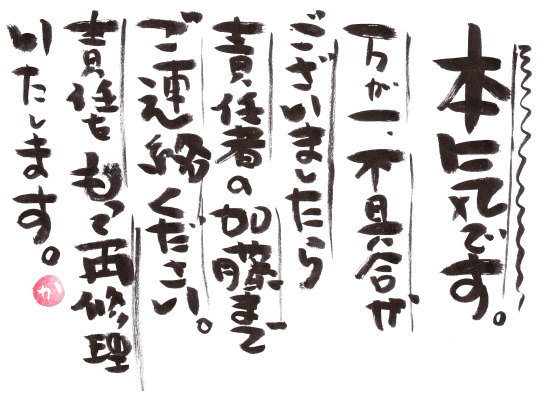 本気です。
万が一、不具合が
ございましたら
責任者の加藤まで
ご連絡ください。
責任もって再修理
いたします。
か